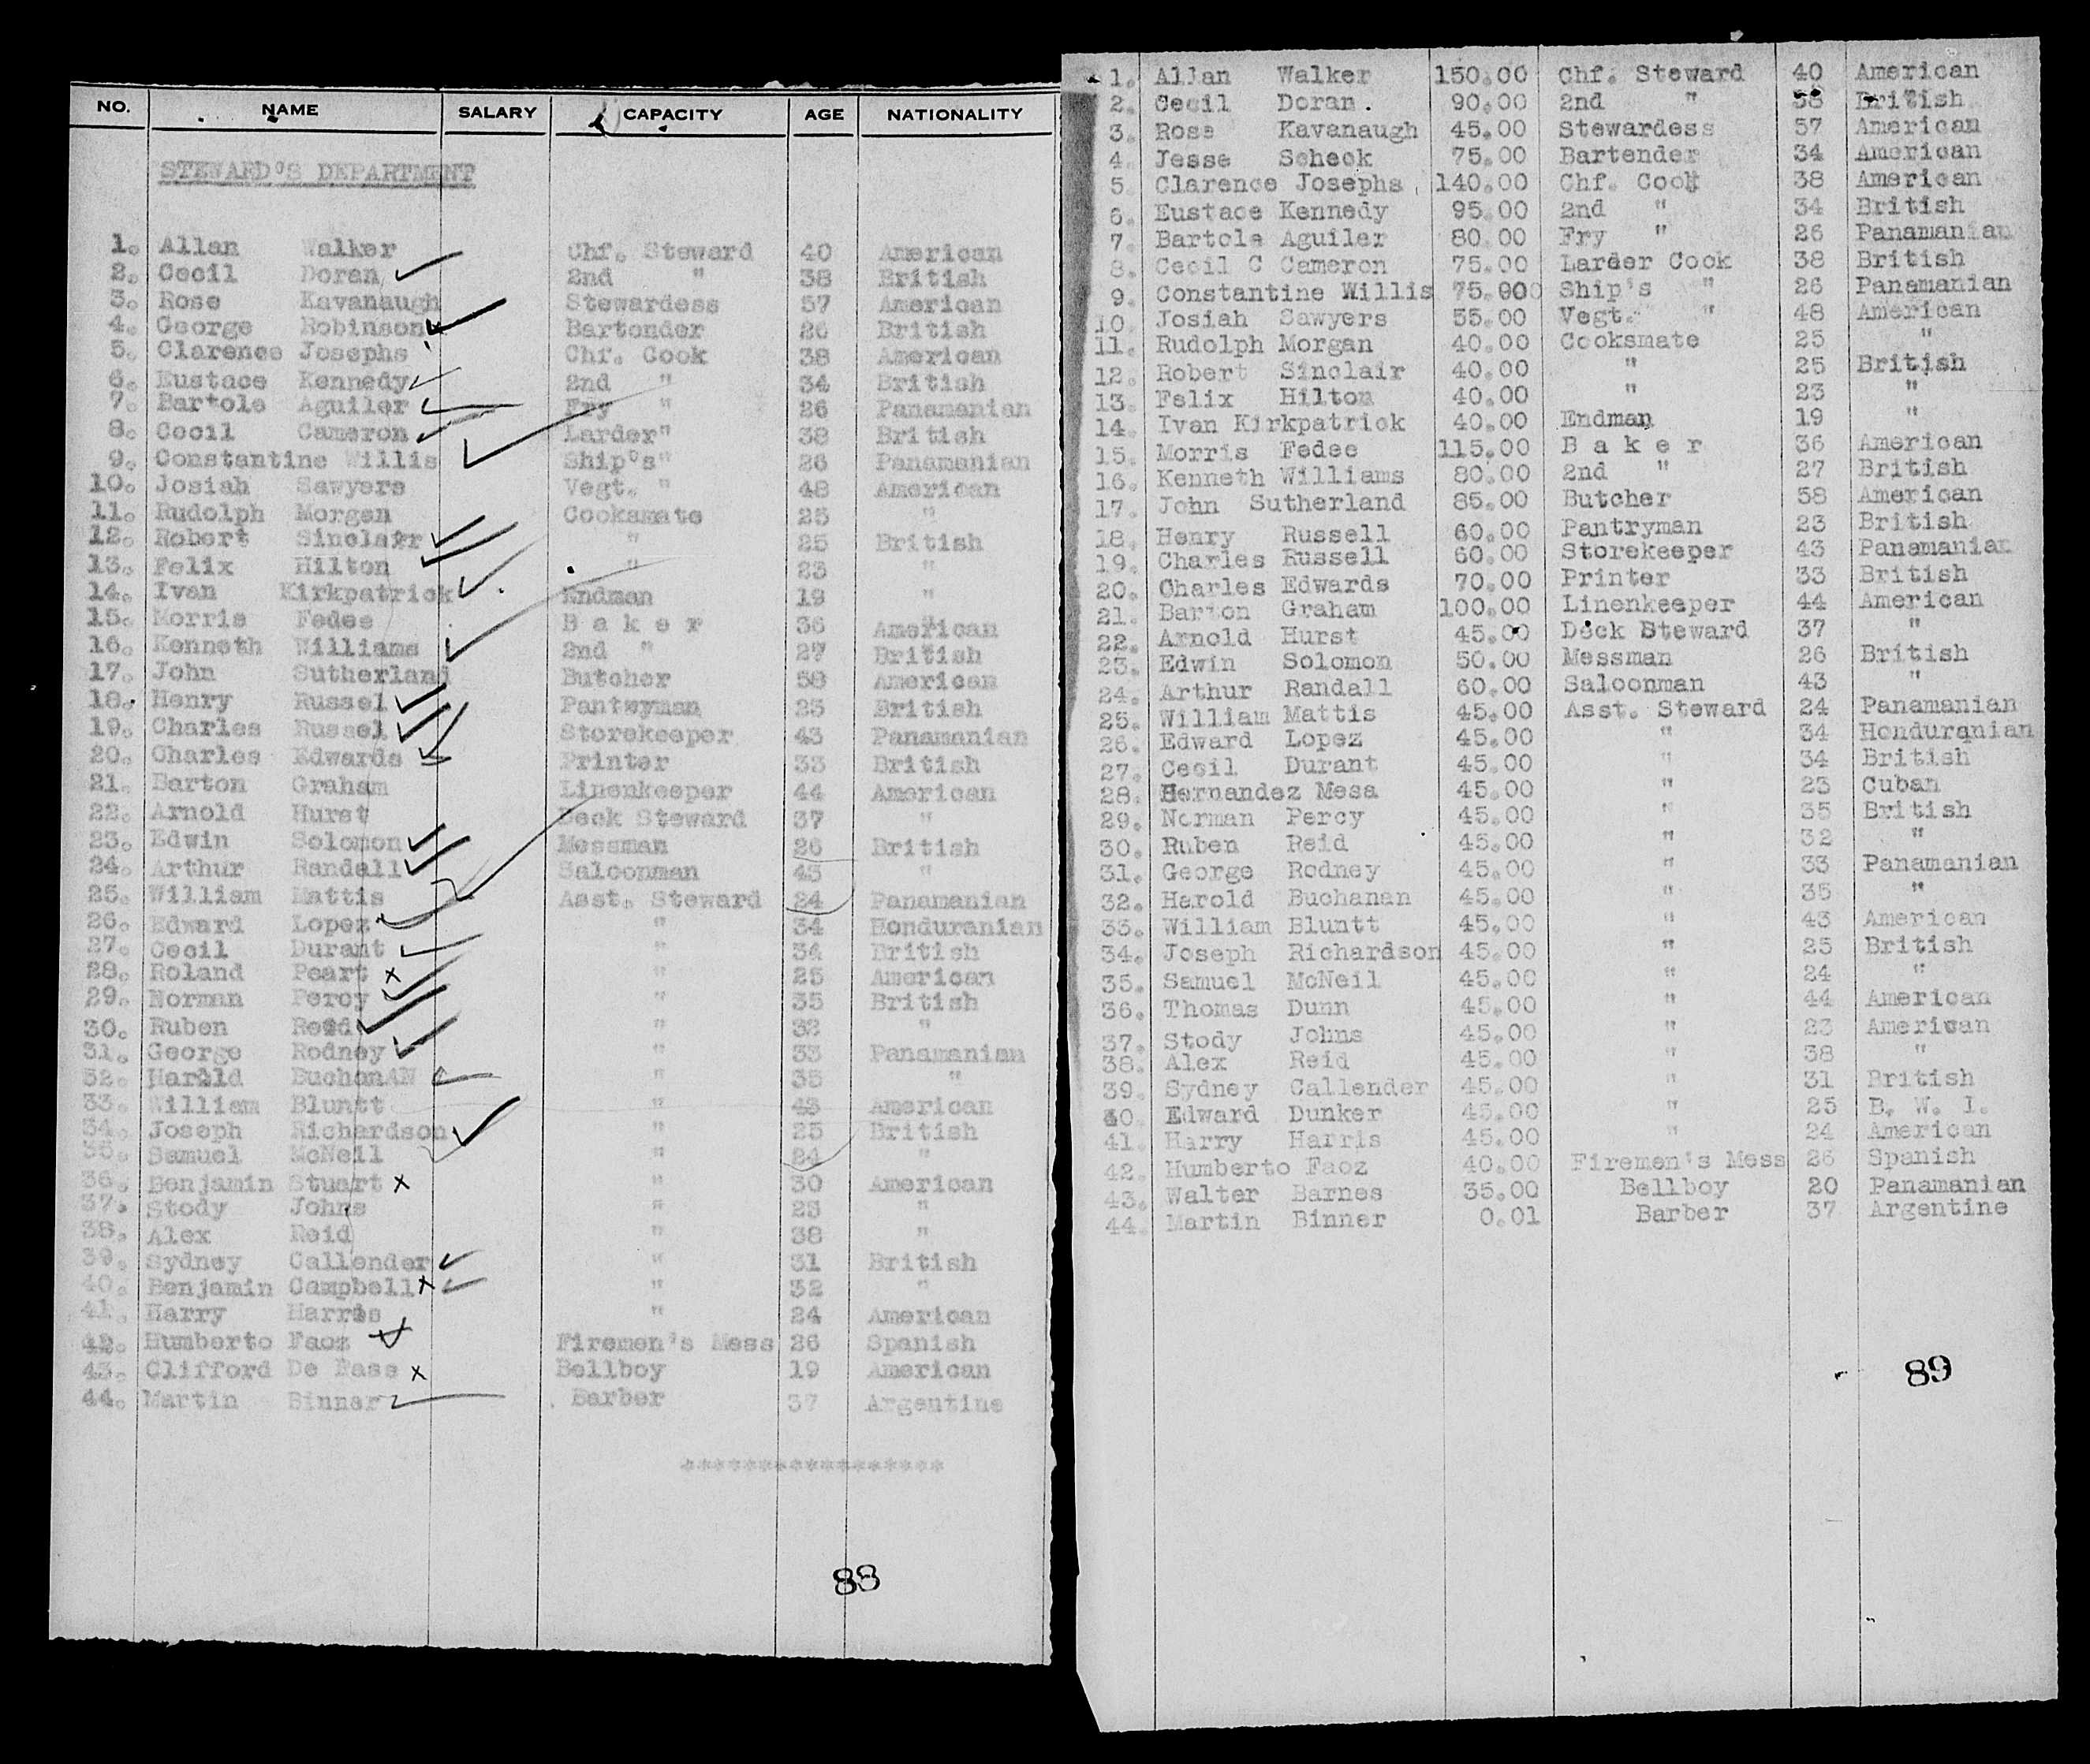 NO. NAME SALARY CAPACITY AGE NATIONALITY
STEWARD'S DEPARTMENT
1. Allan Walker Chf. Steward 40 American
2. Cecil Doran 2nd " 38 British
3. Rose Kavanaugh Stewardess 57 American
4. George Robinson Bartender 26 British
5. Clarence Josephs Chf. Cook 38 American
6. Eustace Kennedy 2nd " 34 British
7. Bartole Aguiler Fry " 26 Panamanian
8. Cecil Cameron Larder" 38 British
9. Constantine Willis Ship's" 26 Panamanian
10. Josiah Sawyers Vegt. " 48 American
11. Rudolph Morgan Cooksmate 25 "
12. Robert Sinclair " 25 British
13. Felix Hilton " 23 "
14. Ivan Kirkpatrick Endman 19 "
15. Morris Fedee B a k e r 36 American
16. Kenneth Williams 2nd " 27 British
17. John Sutherland Butcher 58 American
18. Henry Russel Pantryman 23 British
19. Charles Russel Storekeeper 43 Panamanian
20. Charles Edwards Printer 33 British
21. Barton Graham Linenkeeper 44 American
22. Arnold Hurst Deck Steward 37 "
23. Edwin Solomon Messman 26 British
24. Arthur Randall Saloonman 43 "
25. William Mattis Asst. Steward 24 Panamanian
26. Edward Lopez " 34 Honduranian
27. Cecil Durant " 34 British
28. Roland Peart x " 25 American
29. Norman Percy " 35 British
30. Ruben Reid " 32 "
31. George Rodney " 33 Panamanian
32. Harold BuchonAN " 35 "
33. William Bluntt " 43 American
34. Joseph Richardson " 25 British
35. Samuel McNeil " 24 "
36. Benjamin Stuart x " 30 American
37. Stody Johns " 23 "
38. Alex Reid " 38 "
39. Sydney Callender " 31 British
40. Benjamin Campbell x " 32 "
41. Harry Harris " 24 American
42. Humberto Faoz Firemen's Mess 26 Spanish
43. Clifford De Bass x Bellboy 19 American
44. Martin Binner Barber 37 Argentine
******************
88
1. Allan Walker 150.00 Chf. Steward 40 American
2. Cecil Doran. 90.00 2nd " 38 British
3. Rose Kavanaugh 45.00 Stewardess 57 American
4. Jesse Scheck 75.00 Bartender 34 American
5. Clarence Josephs 140.00 Chf. Cook 38 American
6. Eustace Kennedy 95.00 2nd " 34 British
7. Bartole Aguiler 80.00 Fry " 26 Panamanian
8. Cecil C Cameron 75.00 Larder Cook 38 British
9. Constantine Willis 75.000 Ship's " 26 Panamanian
10. Josiah Sawyers 55.00 Vegt. " 48 American
11. Rudolph Morgan 40.00 Cooksmate 25 "
12. Robert Sinclair 40.00 " 25 British
13. Felix Hilton 40.00 " 23 "
14. Ivan Kirkpatrick 40.00 Endman 19 "
15. Morris Fedee 115.00 B a k e r 36 American
16. Kenneth Williams 80.00 2nd " 27 British
17. John Sutherland 85.00 Butcher 58 American
18. Henry Russell 60.00 Pantryman 23 British
19. Charles Russell 60.00 Storekeeper 43 Panamanian
20. Charles Edwards 70.00 Printer 33 British
21. Barton Graham 100.00 Linenkeeper 44 American
22. Arnold Hurst 45.00 Deck Steward 37 "
23. Edwin Solomon 50.00 Messman 26 British
24. Arthur Randall 60.00 Saloonman 43 "
25. William Mattis 45.00 Asst. Steward 24 Panamanian
26. Edward Lopez 45.00 " 34 Honduranian
27. Cecil Durant 45.00 " 34 British
28. Hernandez Mesa 45.00 " 23 Cuban
29. Norman Percy 45.00 " 35 British
30. Ruben Reid 45.00 " 32 "
31. George Rodney 45.00 " 33 Panamanian
32. Harold Buchanan 45.00 " 35 "
33. William Bluntt 45.00 " 43 American
34. Joseph Richardson 45.00 " 25 British
35. Samuel McNeil 45.00 " 24 "
36. Thomas Dunn 45.00 " 44 American
37. Stody Johns 45.00 " 23 American
38. Alex Reid 45.00 " 38 "
39. Sydney Callender 45.00 " 31 British
40. Edward Dunker 45.00 " 25 B. W. I.
41. Harry Harris 45.00 " 24 American
42. Humberto Faoz 40.00 Firemen's Mess 26 Spanish
43. Walter Barnes 35.00 Bellboy 20 Panamanian
44. Martin Binner 0.01 Barber 37 Argentine
89